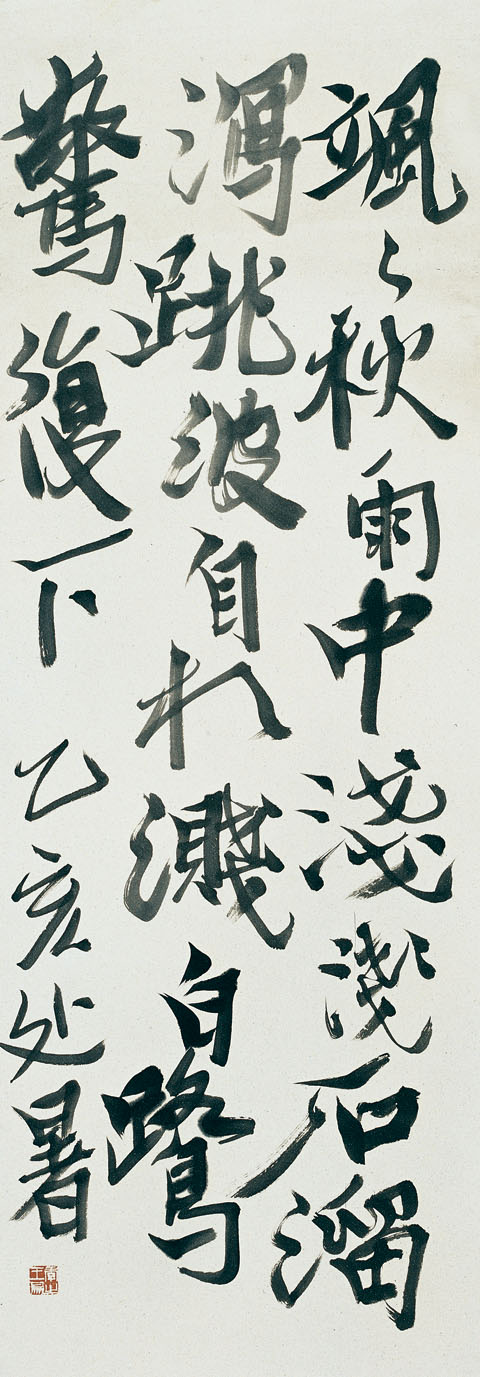 颯〻秋雨中淺淺石溜
瀉跳波自相濺白鷺
驚復下 乙亥处暑